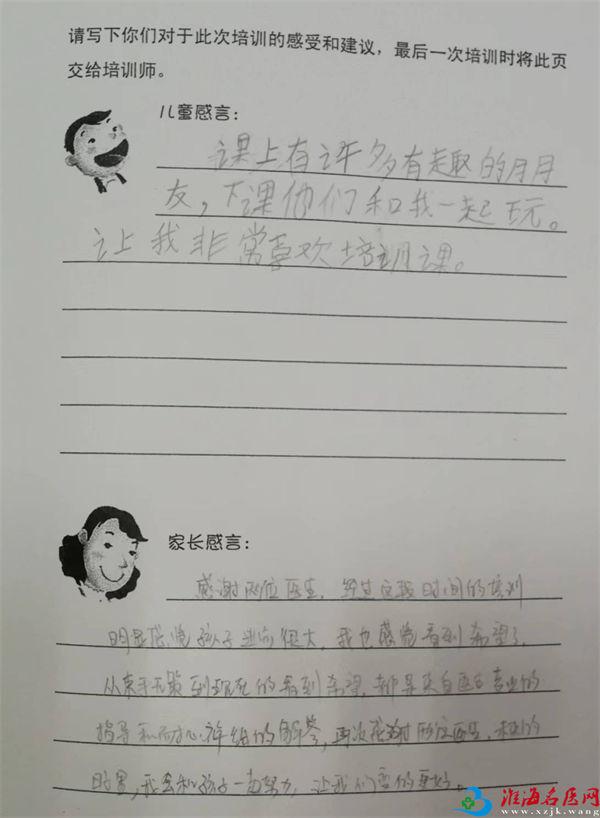 请写下你们对于此次培训的感受和建议，最后一次培训时将此页
交给培训师。
儿童感言：
课上有许多有趣的朋
友，下课他们和我一起玩。
让我非常喜欢培训课。
家长感言：
感谢两位医生，经过这段时间的培训
明显感觉孩子进步很大，我也感觉看到希望了，
从束手无策到现在的看到希望，都是来自医生专业的
指导和耐心详细的解答，再次感谢两位医生，
我会和孩子一起努力，让我们变的更好。
淮海名医网
www.xzjk.wang